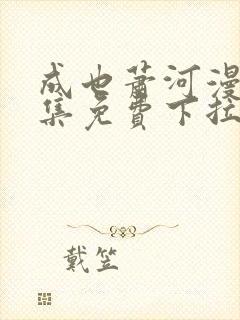 成也萧河漫
集免費下拉
戴笠